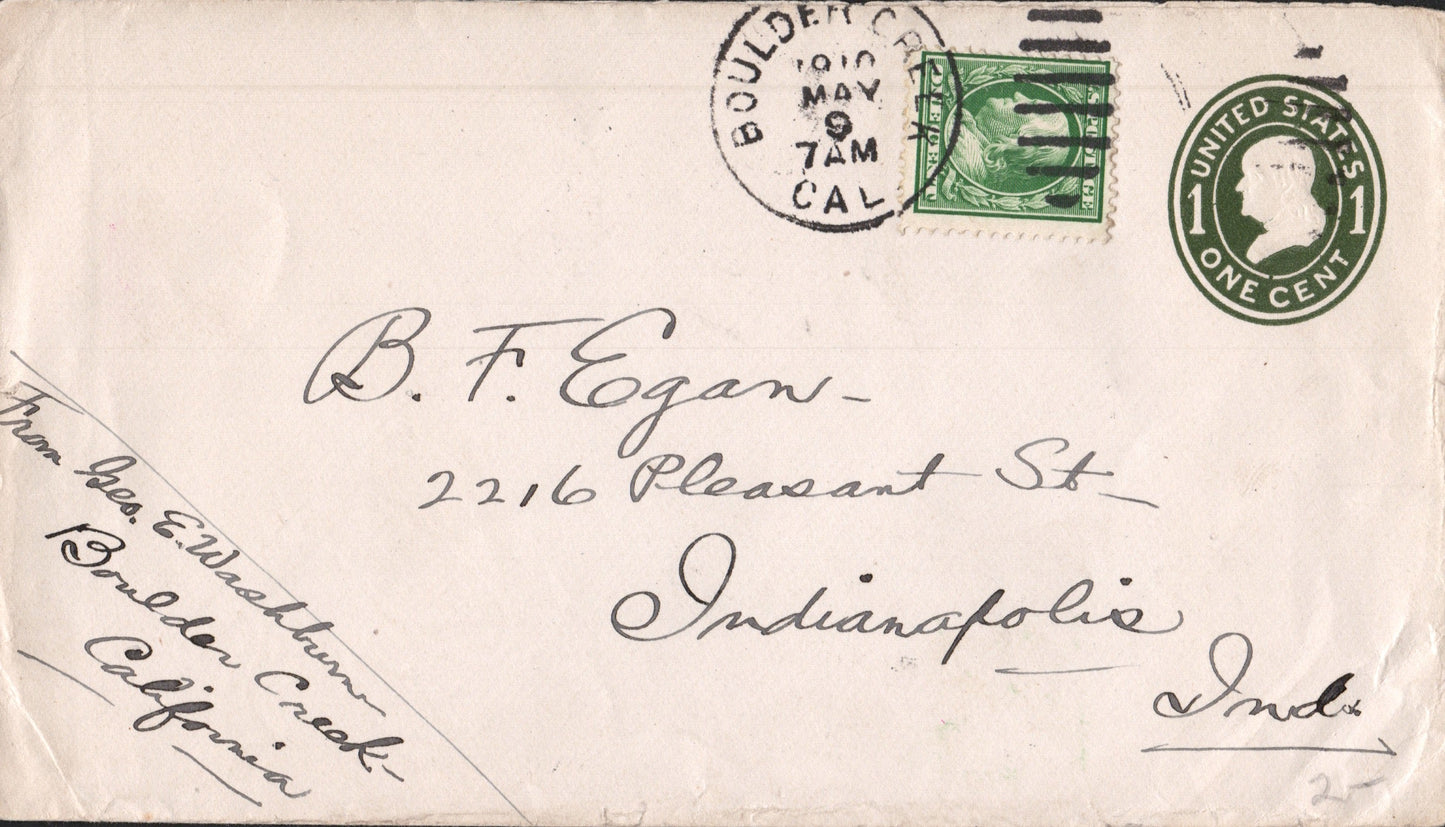 BOULDER CREEK
1910
MAY
9
7AM
CAL
U.S. POSTAGE
ONE CENT
UNITED STATES
1 1
ONE CENT
B. F. Egan-
2216 Pleasant St-
Indianapolis
Ind.
From Geo. E. Washburn
Boulder Creek-
California
25-